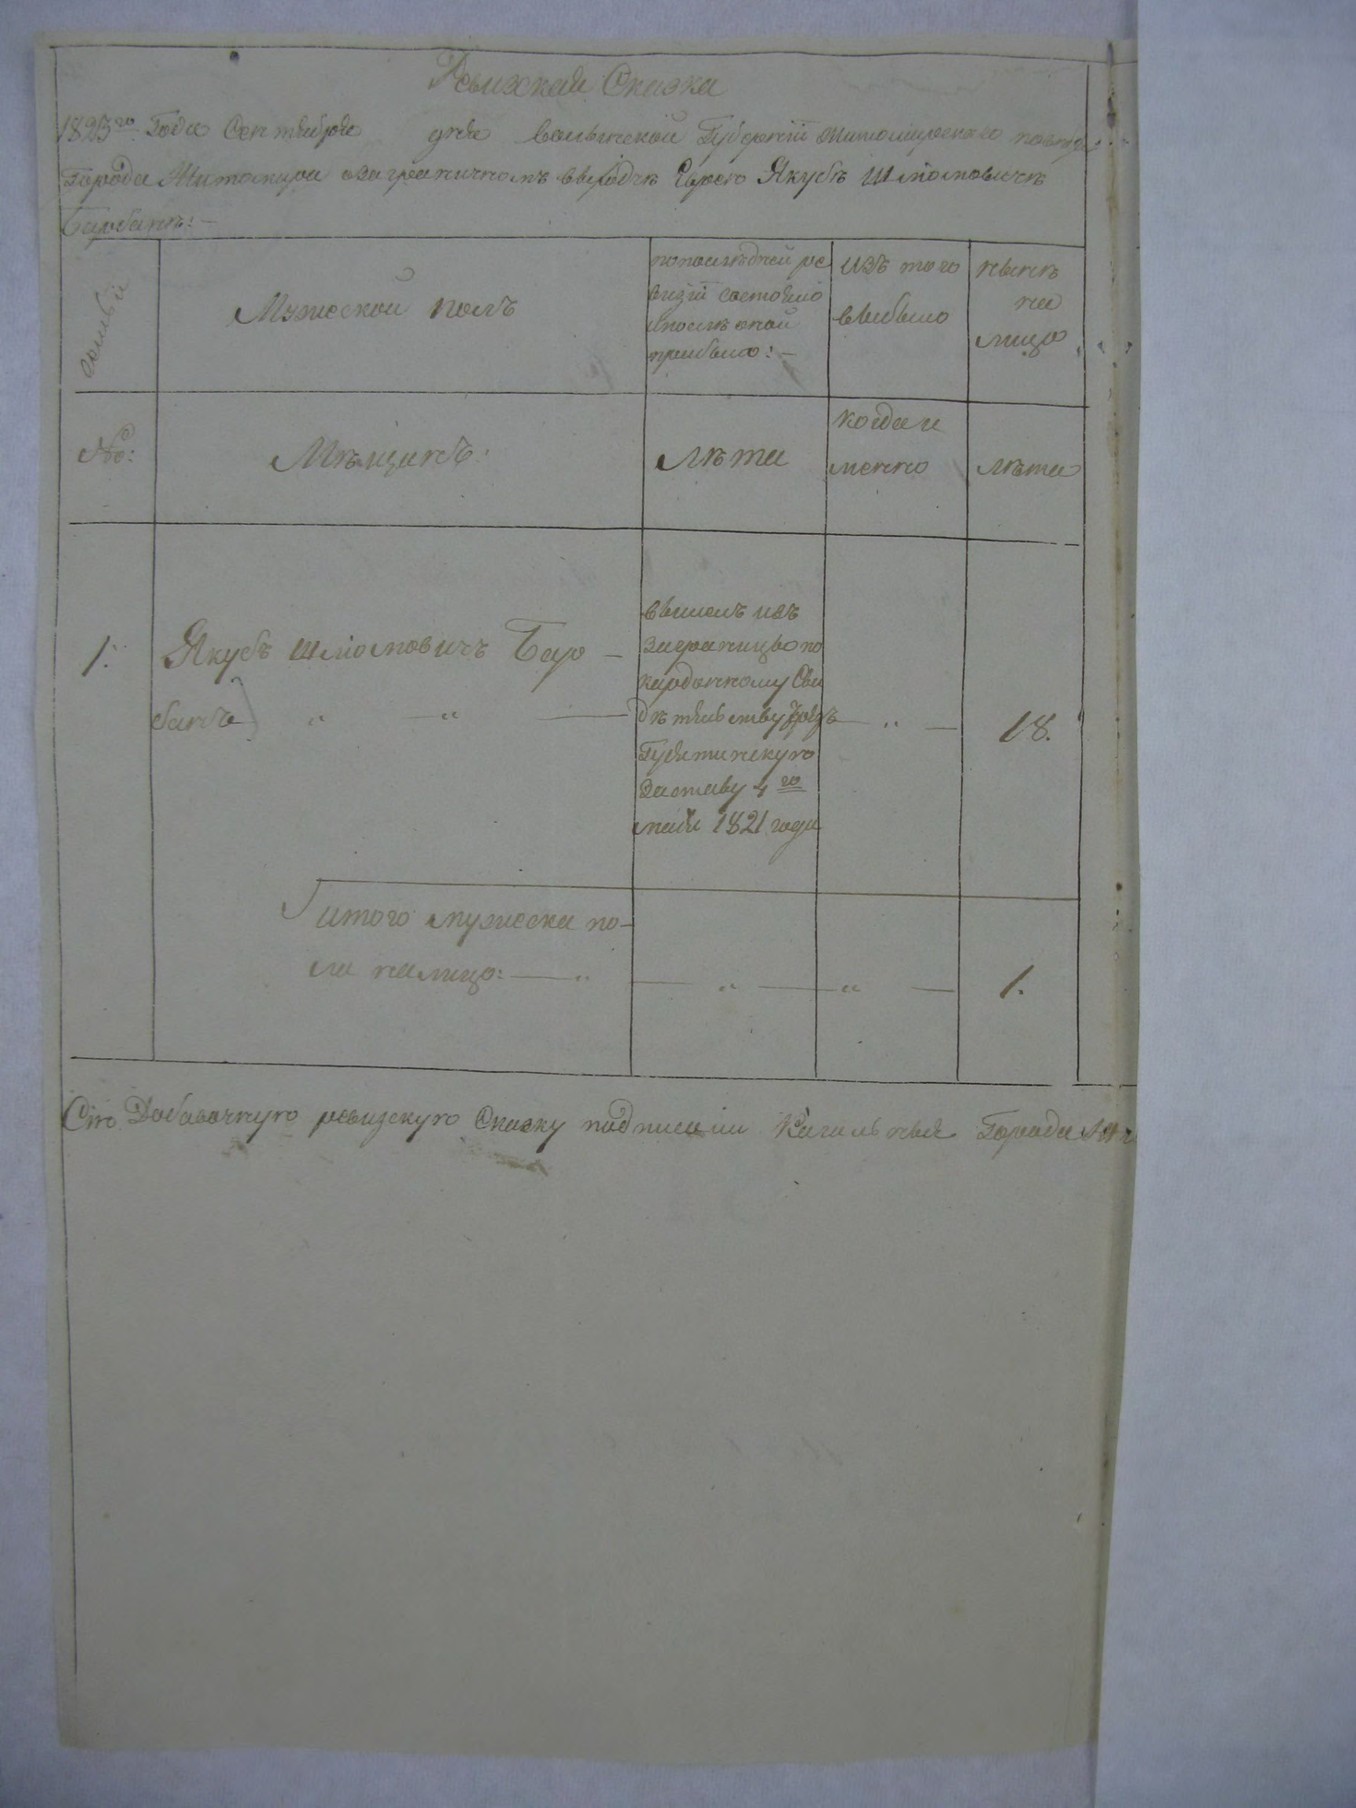 Ревизкая Сказка
1823го Года Сентября дня волынской Губернии Житомирского повета
Города Житомира озаграничномъ выходцѣ Еврею Якубѣ Шліомовичѣ
Барбанѣ:—
Мужеской полъ
попослѣдней ре
визіи состояло
ипослѣ оной
прибыло:—
изъ того
выбыло
нынѣ
на
лицо
№:
Мѣщанъ:
лѣта
когда и
менно
лѣта
1:
Якубъ Шліомовичъ Бар —
банъ
вышелъ изъ
Заграницы по
кардонному Сви
дѣтельству чрезъ
Гусятинскую
Заставу 4го
мая 1821 года
18.
итого мужеска по-
ла налицо:—
1.
Сію Добавочную ревизскую Сказку подписали Кагальные Города